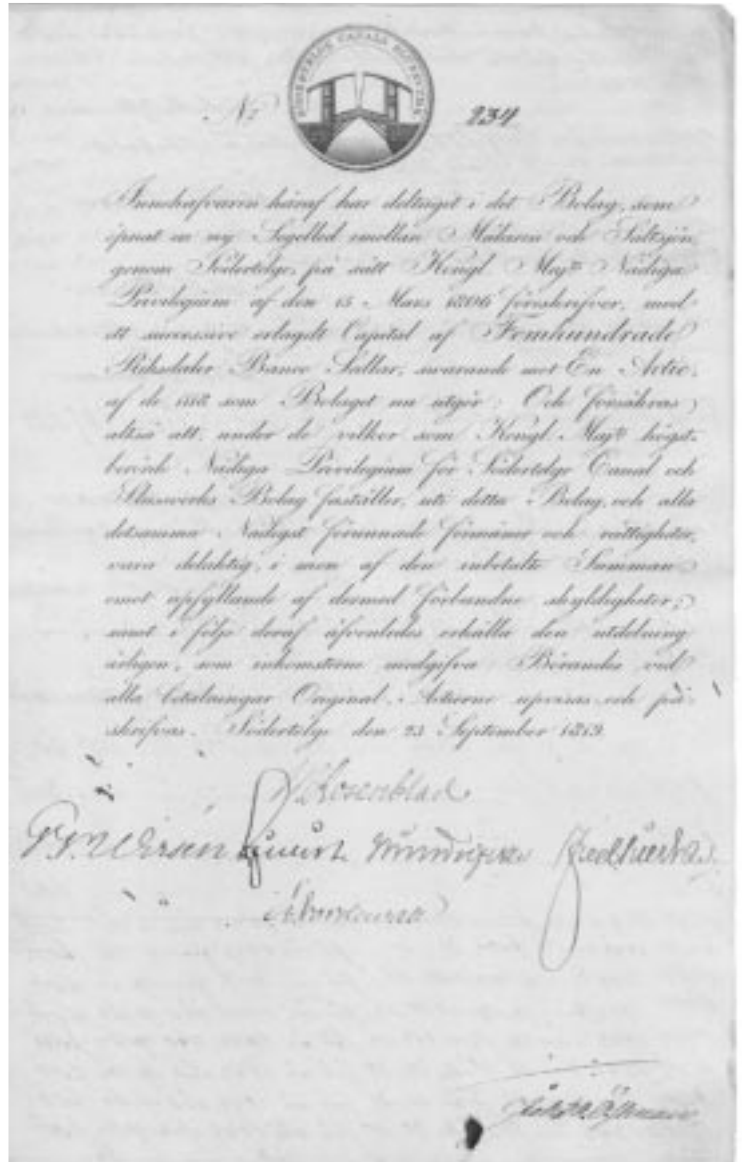 No 234
Innehafvaren häraf har deltagit i det Bolag, som
öpnat en ny Segelled emellan Mälaren och Saltsjön
genom Södertelge, på sätt Kongl. Maj:ts Nådiga
Privilegium af den 15 Mars 1806 föreskrifver, med
ett successive erlagdt Capital af Femhundrade
Riksdaler Banco Sedlar, svarande mot En Actie,
af de som Bolaget nu utgör; Och försäkras
altså att, under de vilkor som Kongl. Maj:ts högst-
berörde Nådiga Privilegium för Södertelge Canal och
Slussverks Bolag faställer, uti detta Bolag, och alla
detsamma Nådigst förunnade förmåner och rättigheter,
vara delaktig, i mon af den inbetalte Summan
emot upfyllande af dermed förbundne skyldigheter;
samt i följe deraf äfvenledes erhålla den utdelning
årligen, som inkomsterne medgifva. Börandes vid
alla betalningar Original-Actierne upvisas och på-
skrifvas. Södertelge den 23 September 1819.
Rosenblad